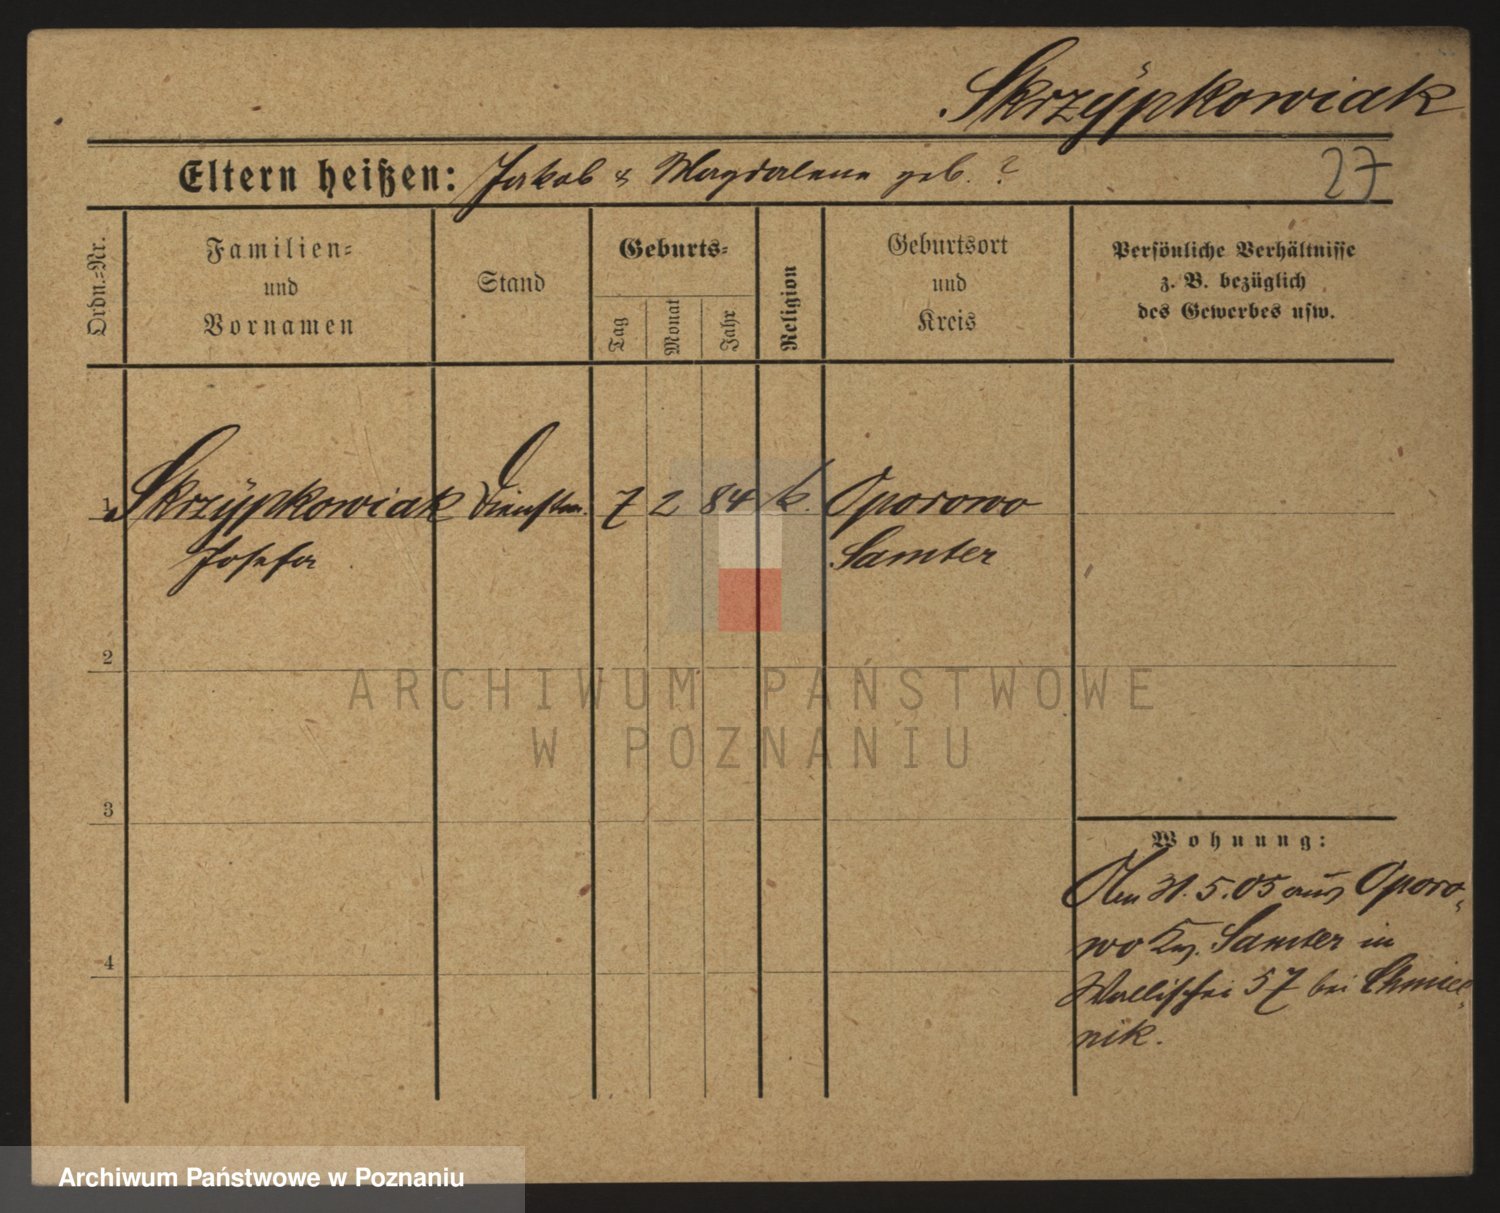 Skrzÿpkowiak
Eltern heißen: Jakob & Magdalena geb. ?
27
Ordn.-Nr.
Familien-
und
Vornamen
Stand
Geburts-
Tag
Monat
Jahr
Religion
Geburtsort
und
Kreis
Persönliche Verhältnisse
z. B. bezüglich
des Gewerbes usw.
1 Skrzÿpkowiak Dienstm. 7 2 84 k. Oporowo
Josefa Samter
2
ARCHIWUM PAŃSTWOWE
W POZNANIU
3
Wohnung:
Am 31.5.05 aus Oporo-
wo Samter in
4
Wallischei 57 bei Chmiel-
nik.
Archiwum Państwowe w Poznaniu